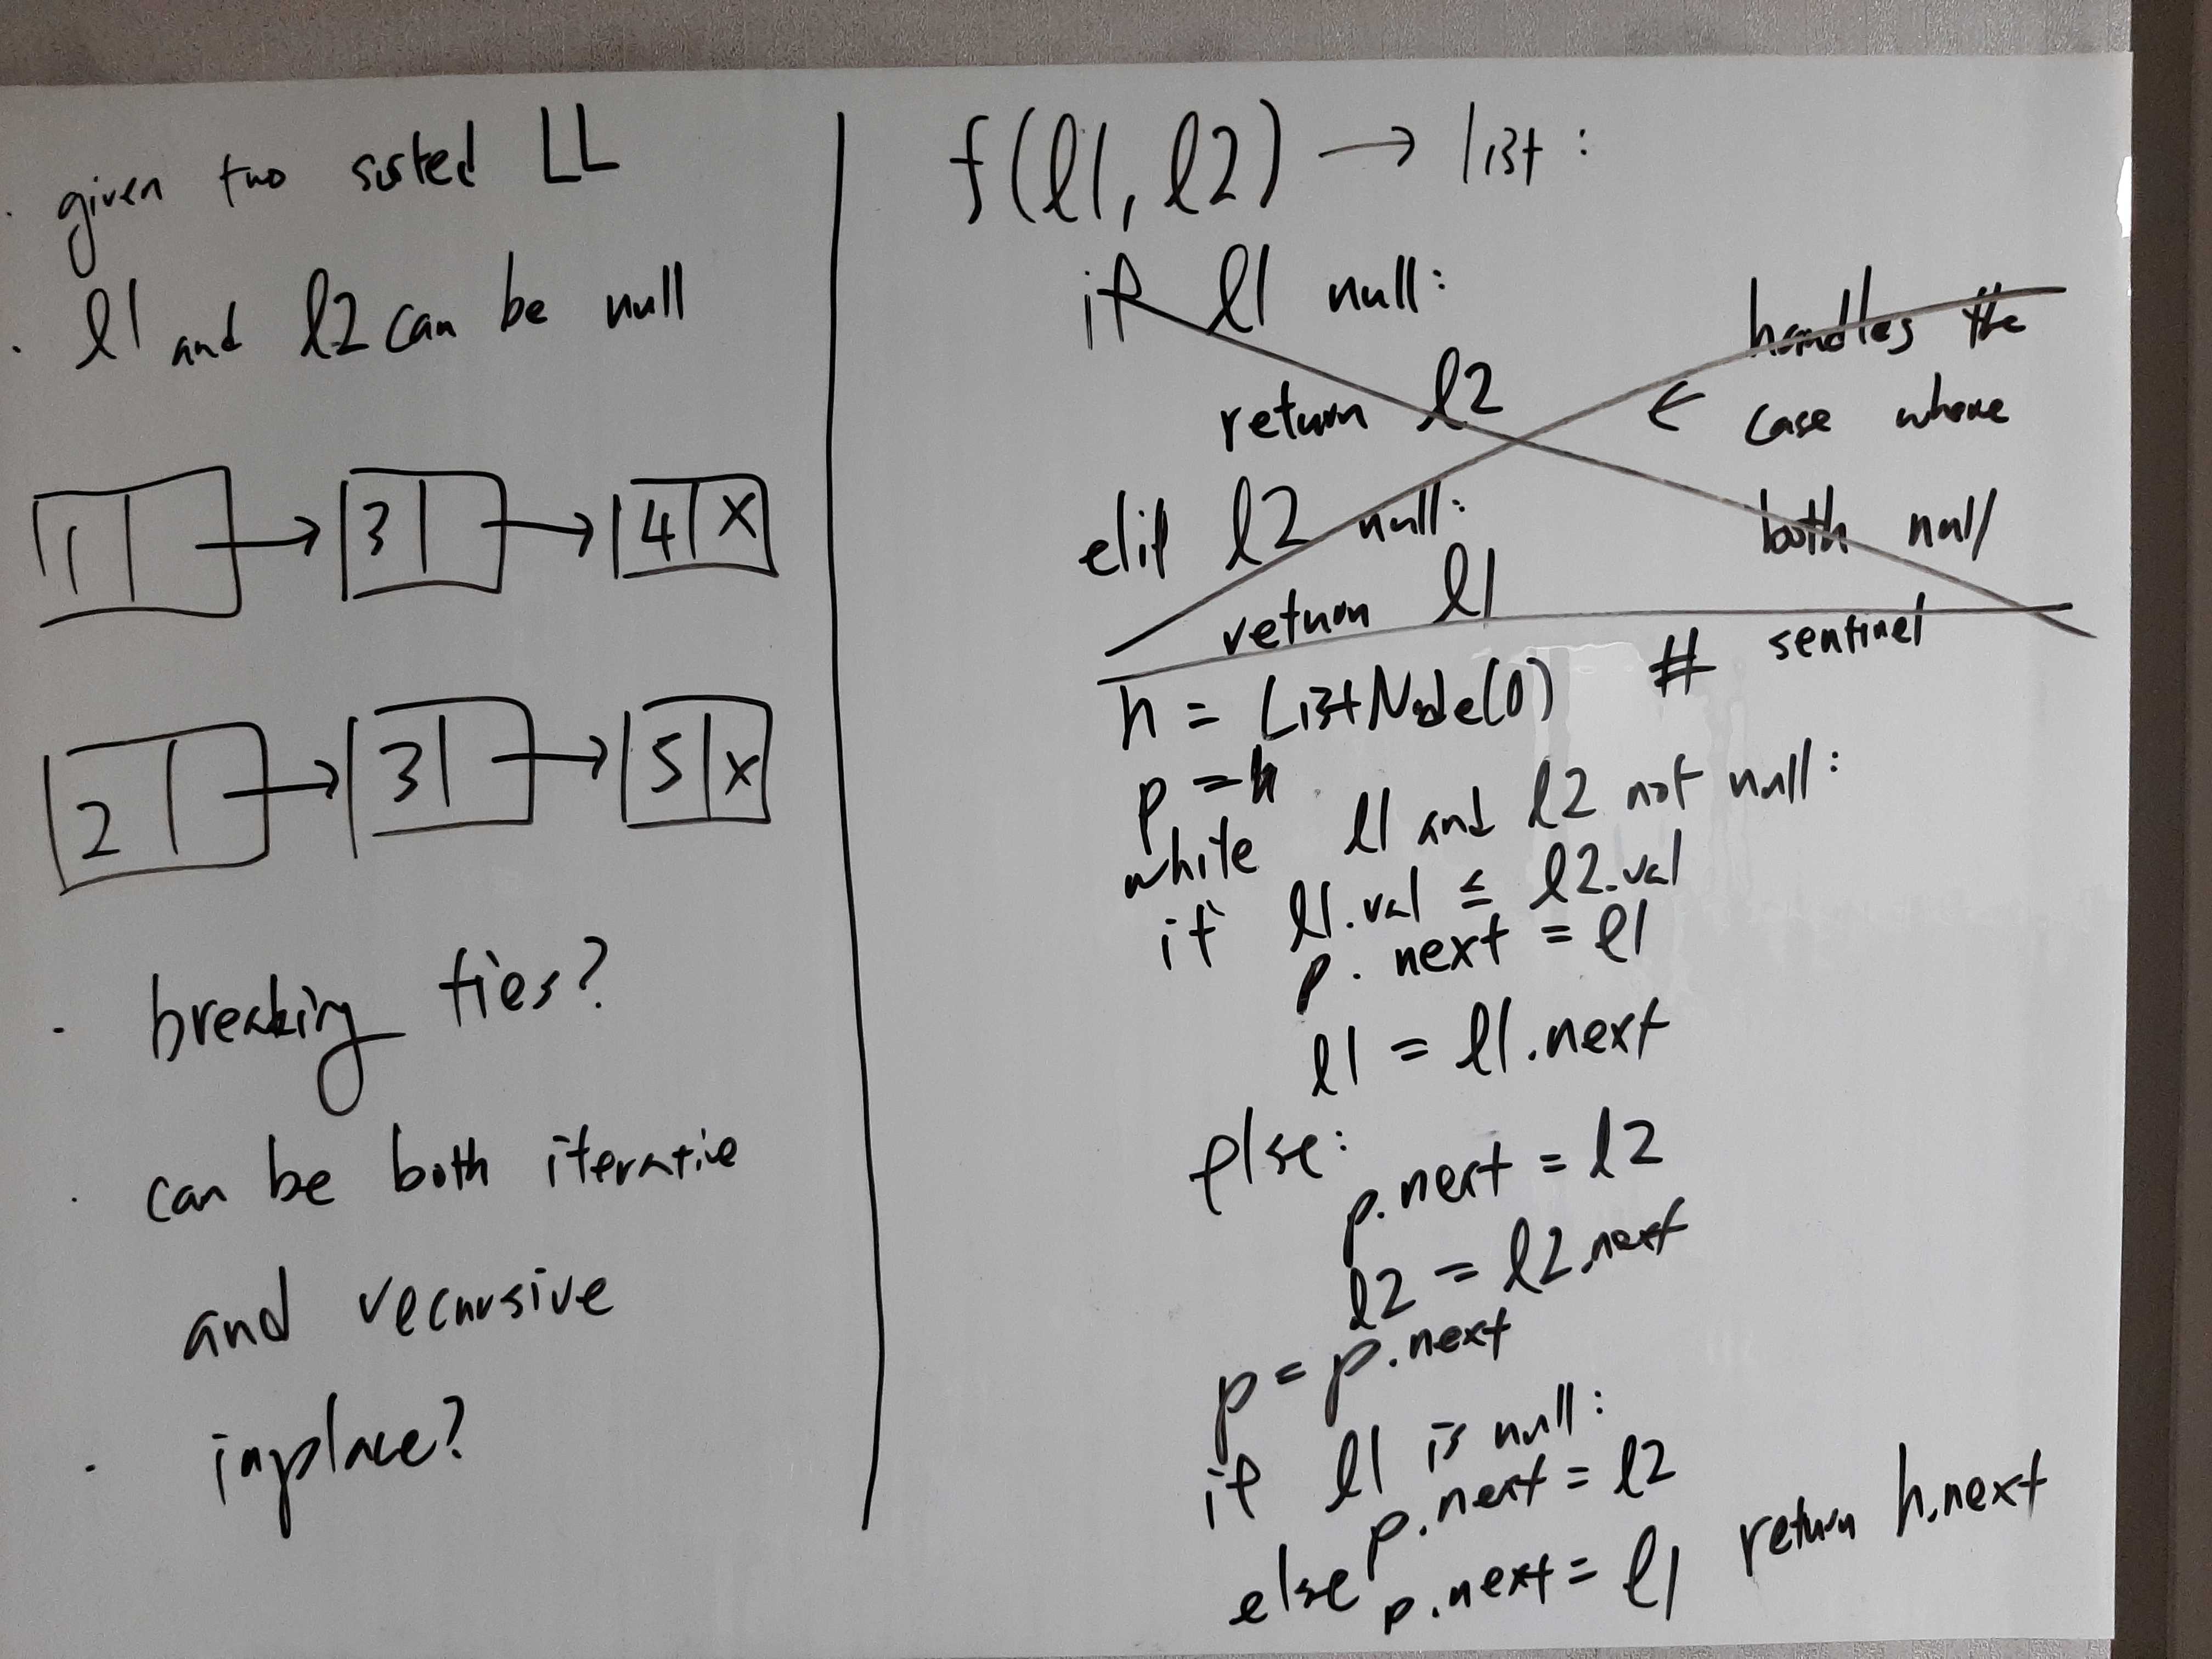 . given two sorted LL
. l1 and l2 can be null
1 → 3 → 4 X
2 → 3 → 5 X
. breaking ties?
. can be both iterative
and recursive
. inplace?
f(l1, l2) → list :
if l1 null:
return l2
elif l2 null:
return l1
← handles the
case where
both null
h = ListNode(0) # sentinel
p = h
while l1 and l2 not null:
if l1.val ≤ l2.val
p.next = l1
l1 = l1.next
else:
p.next = l2
l2 = l2.next
p = p.next
if l1 is null:
p.next = l2
else p.next = l1
return h.next